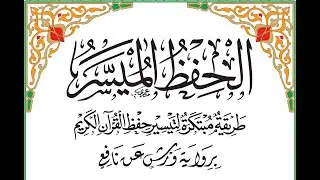 الْحِفْظُ الْمُيَسَّرُ
طَرِيقَةٌ مُبْتَكَرَةٌ لِتَيْسِيرِ حِفْظِ الْقُرْآنِ الْكَرِيمِ
بِرِوَايَةِ وَرْشٍ عَنْ نَافِعٍ